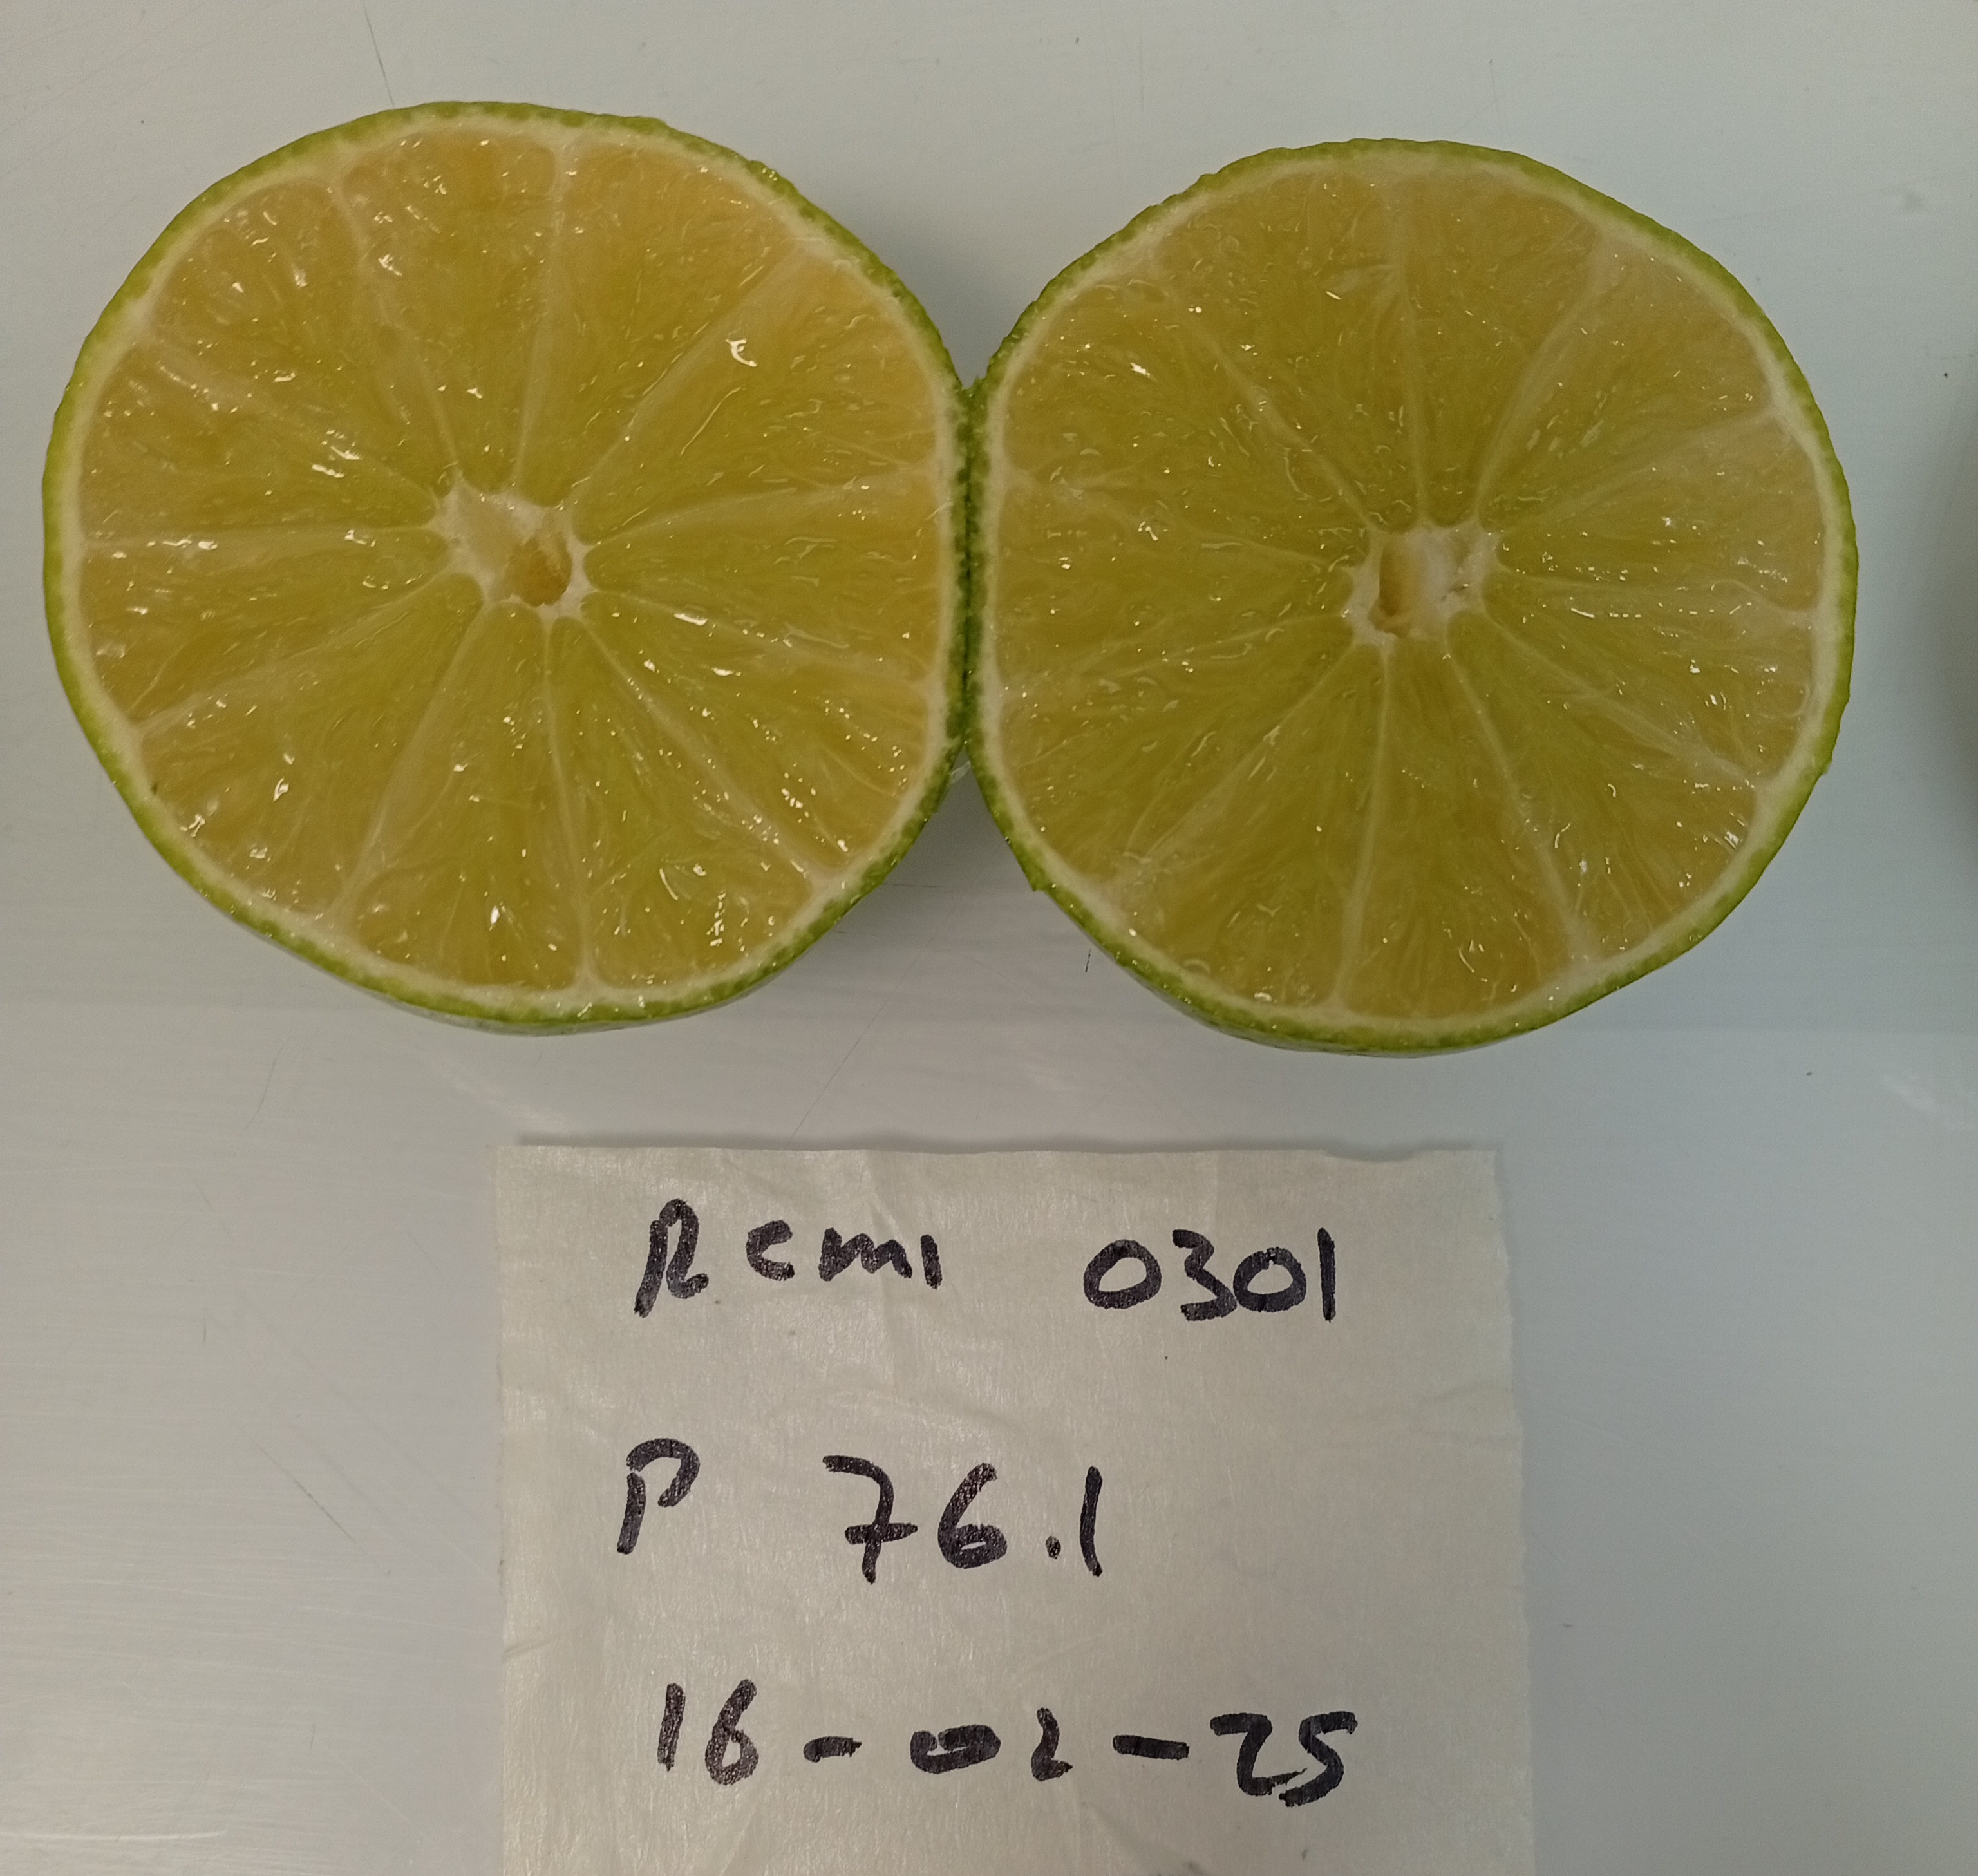 Remi 0301
P 76.1
16-02-25